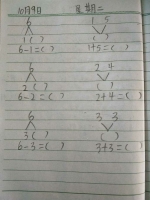 10月9日 星期二
6 1 5
1 ( ) ( )
6-1=( ) 1+5=( )
6 2 4
2 ( ) ( )
6-2=( ) 2+4=( )
6 3 3
3 ( ) ( )
6-3=( ) 3+3=( )